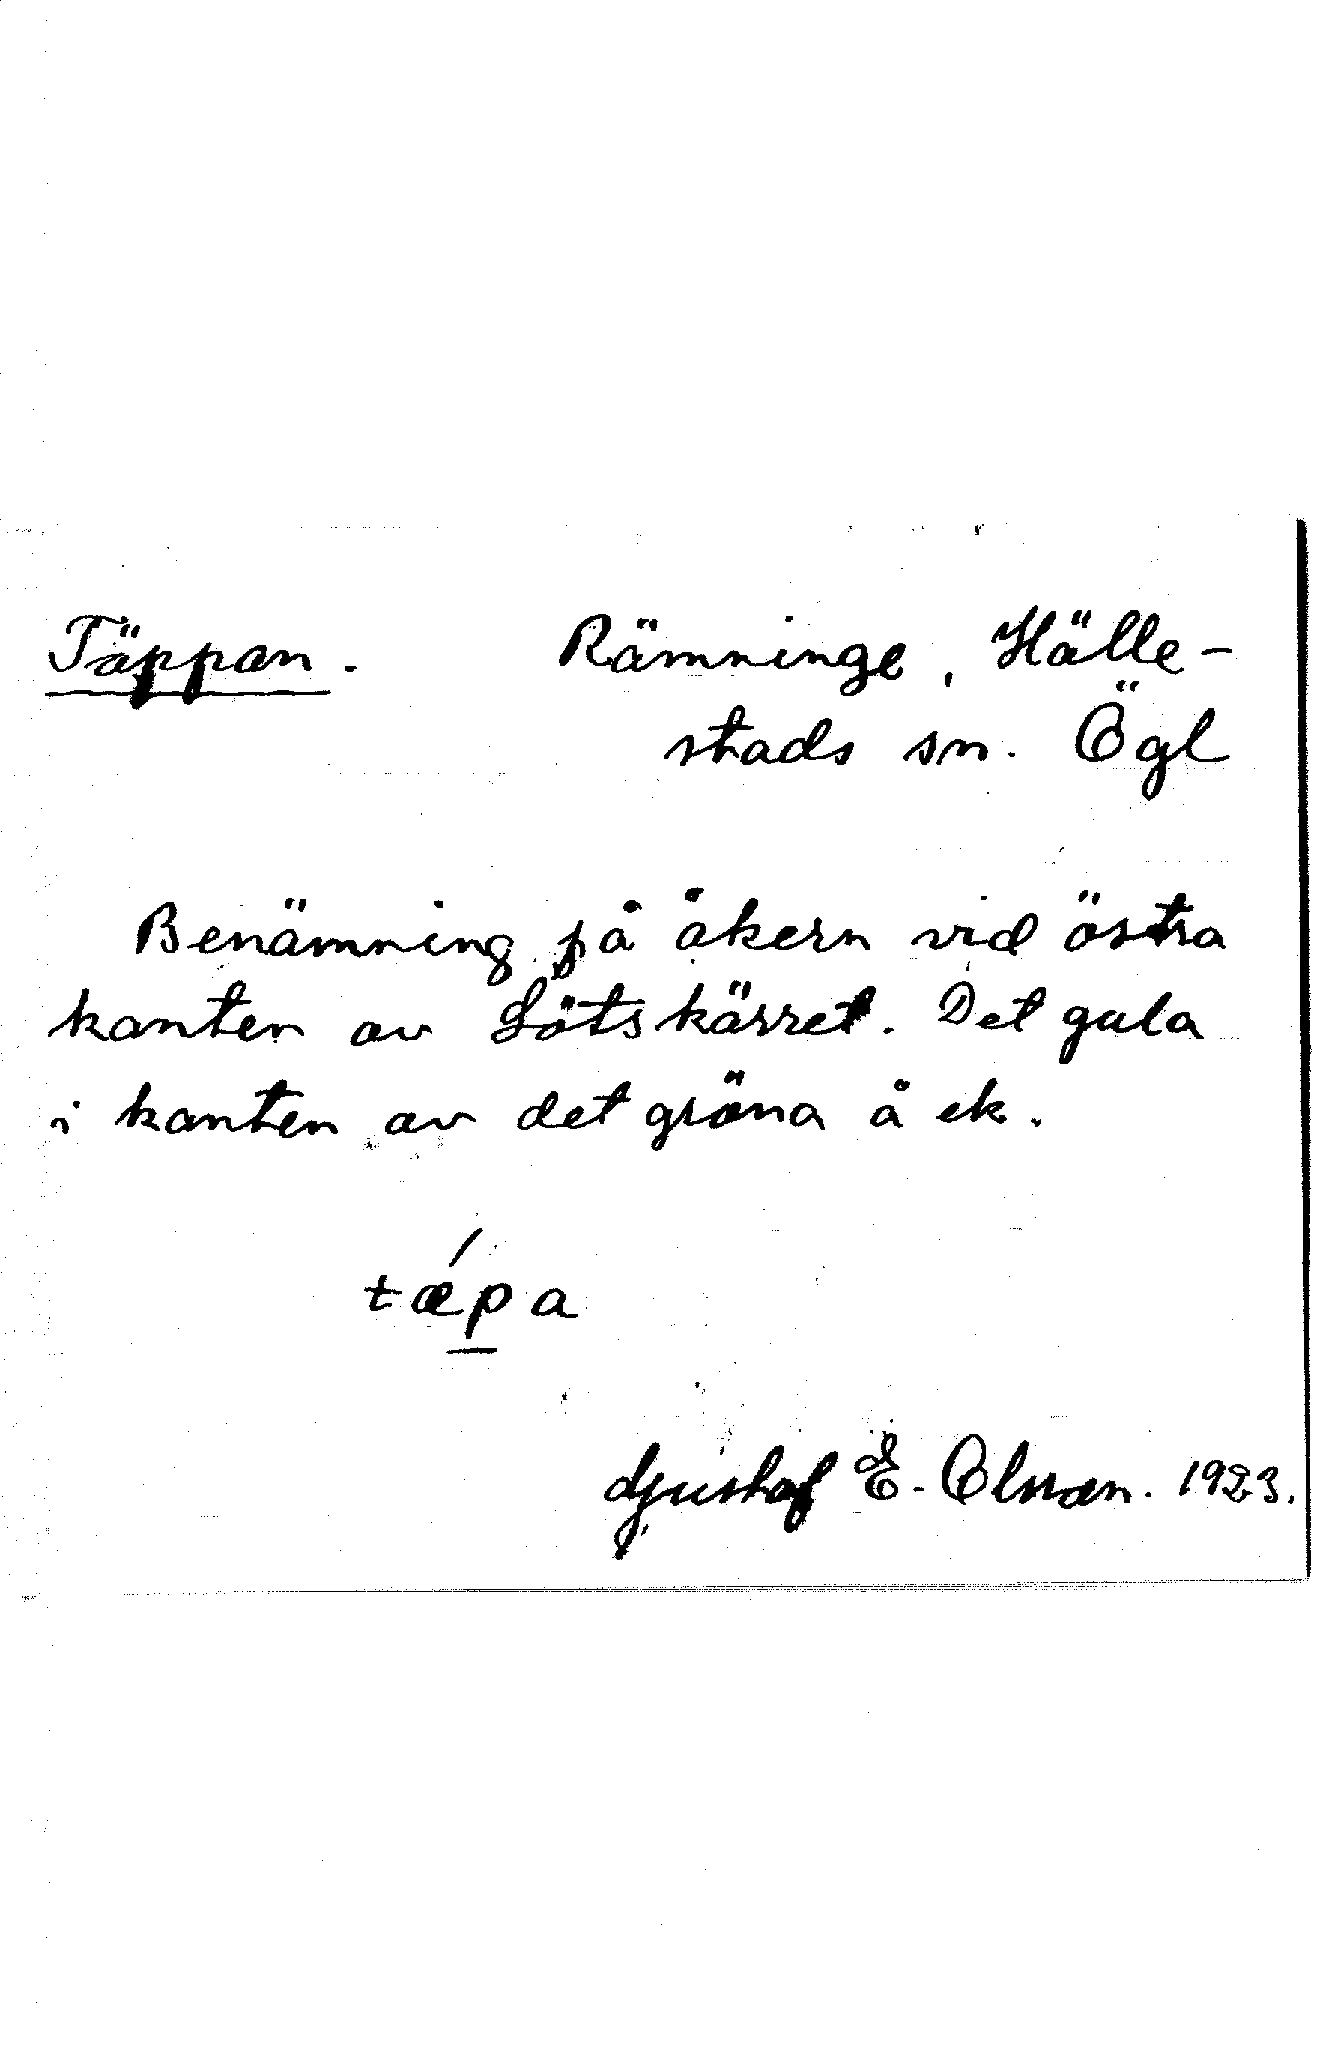 Täppan. Rämninge, Hälle-
stads sn. Ögl
Benämning på åkern vid östra
kanten av Lötskärret. Det gula
i kanten av det gröna å ek.
tǽpa
Gustaf E. Olsson. 1923.